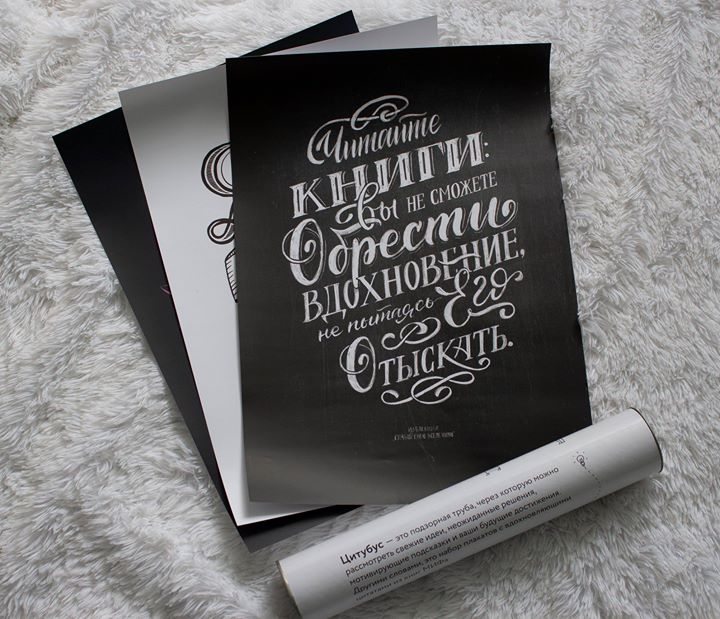 Читайте
КНИГИ:
Вы НЕ СМОЖЕТЕ
Обрести
ВДОХНОВЕНИЕ,
не пытаясь Его
ОТЫСКАТЬ.
Цитубус — это подзорная труба, через которую можно
рассмотреть свежие идеи, неожиданные решения,
мотивирующие подсказки и ваши будущие достижения
Другими словами, это набор плакатов с вдохновляющими
цитатами из книг МИФа